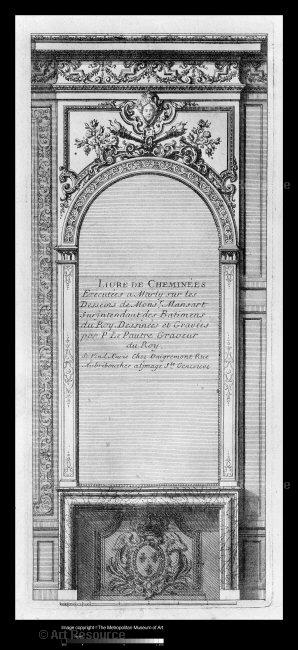 LIURE DE CHEMINÉES
Executées a Marly sur les
Desseins de Mons.r Mansart
Sur-intendant des Batimens
du Roy. Dessinées et Gravées
par P. Le Pautre Graveur
du Roy.
Se Vend a Paris Chez Daigremont Rue
a l'jmage S.te Genevieve
Image copyright ©The Metropolitan Museum of Art
© Art Resource